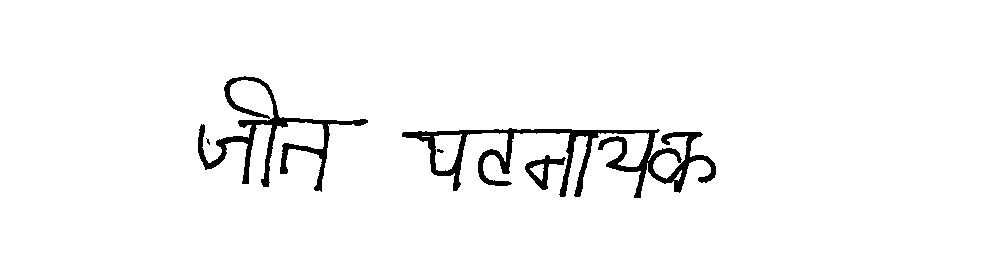 जीत पटनायक